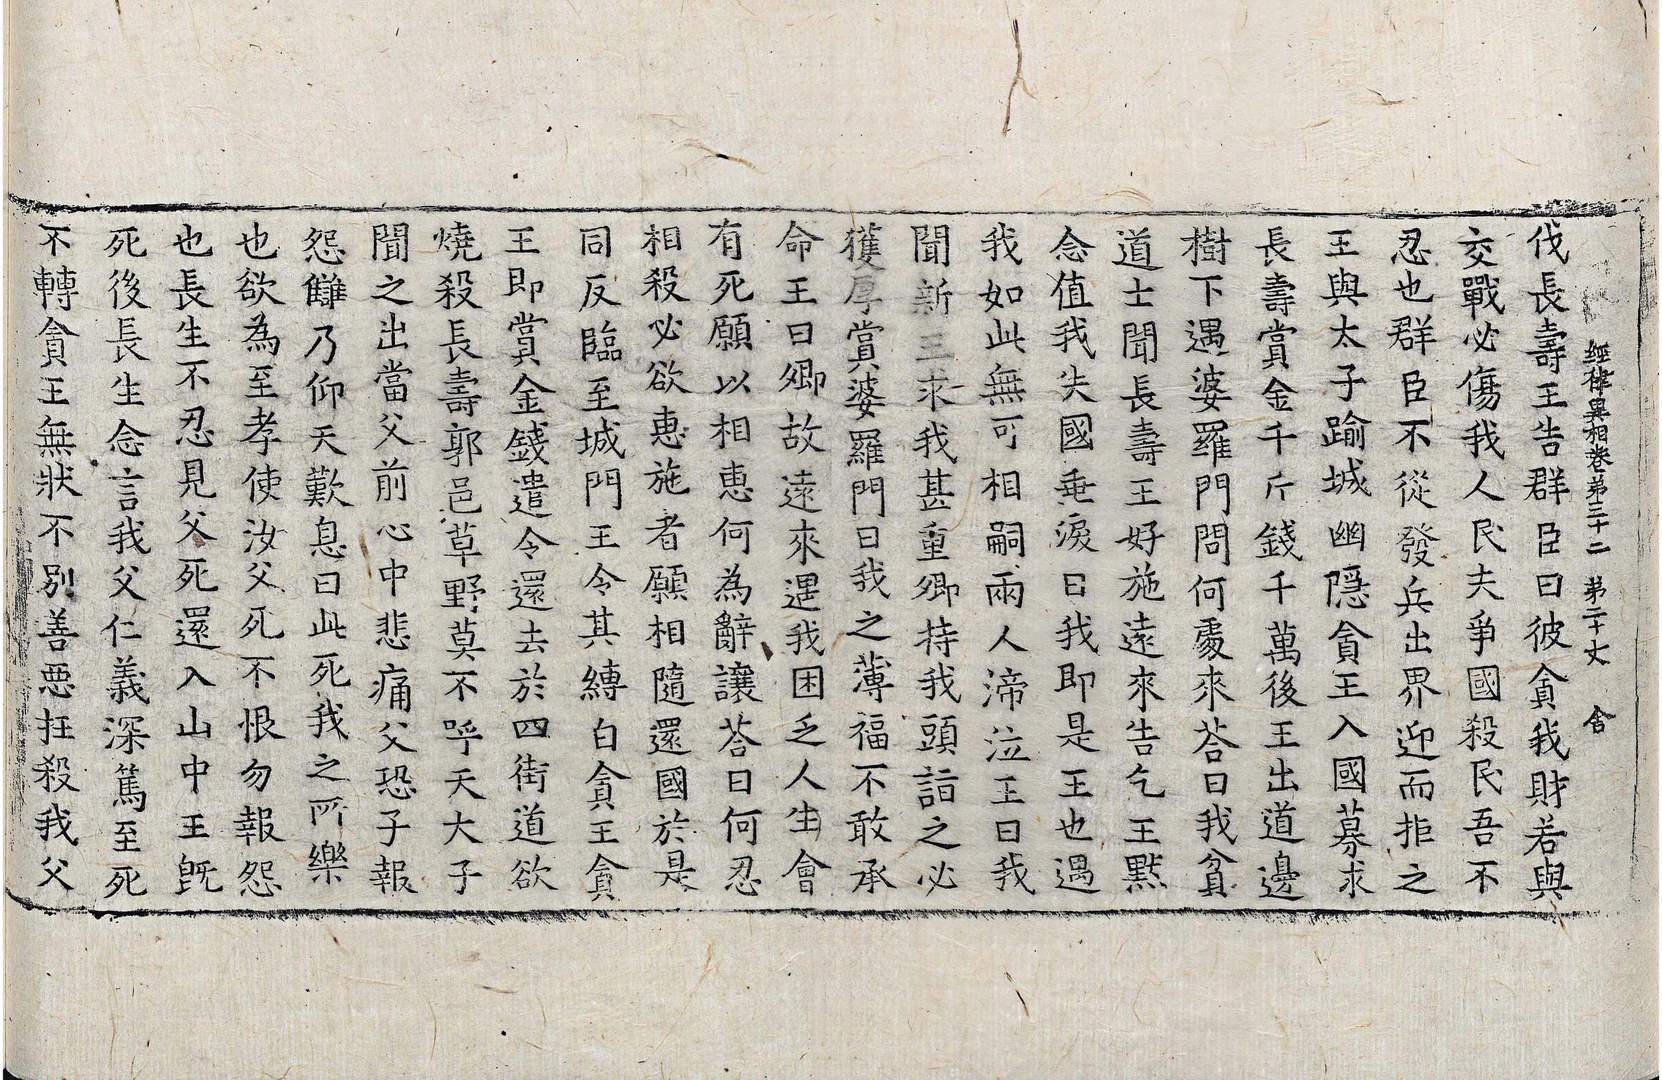 經律異相卷第三十二　第二十丈　舍
伐長壽王告群臣曰彼貪我財若與
交戰必傷我人民夫爭國殺民吾不
忍也群臣不從發兵出界迎而拒之
王與太子踰城幽隱貪王入國募求
長壽賞金千斤錢千萬後王出道邊
樹下遇婆羅門問何處來荅曰我貧
道士聞長壽王好施遠來告乞王默
念值我失國垂淚曰我即是王也遇
我如此無可相嗣兩人渧泣王曰我
聞新王求我甚重卿持我頭詣之必
獲厚賞婆羅門曰我之薄福不敢承
命王曰卿故遠來遇我困乏人生會
有死願以相惠何為辭讓荅曰何忍
相殺必欲惠施者願相隨還國於是
同反臨至城門王令其縛白貪王貪
王即賞金錢遣令還去於四街道欲
燒殺長壽郭邑草野莫不呼天大子
聞之出當父前心中悲痛父恐子報
怨讎乃仰天歎息曰此死我之所樂
也欲為至孝使汝父死不恨勿報怨
也長生不忍見父死還入山中王旣
死後長生念言我父仁義深篤至死
不轉貪王無狀不別善惡抂殺我父